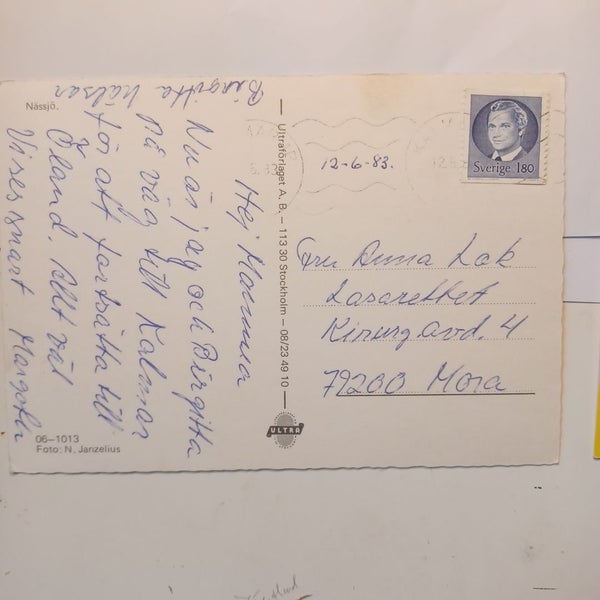 Nässjö.
Hej Mamma
Nu är jag och Birgitta
på väg till Kalmar
för att fortsätta till
Öland. Allt väl
Vi ses snart Margareta
Birgitta hälsar
06–1013
Foto: N. Janzelius
Ultraförlaget A. B. – 113 30 Stockholm – 08/23 49 10
ULTRA
12-6-83.
Sverige 180
Fru Anna Lok
Lasarettet
Kirurg avd. 4
79200 Mora